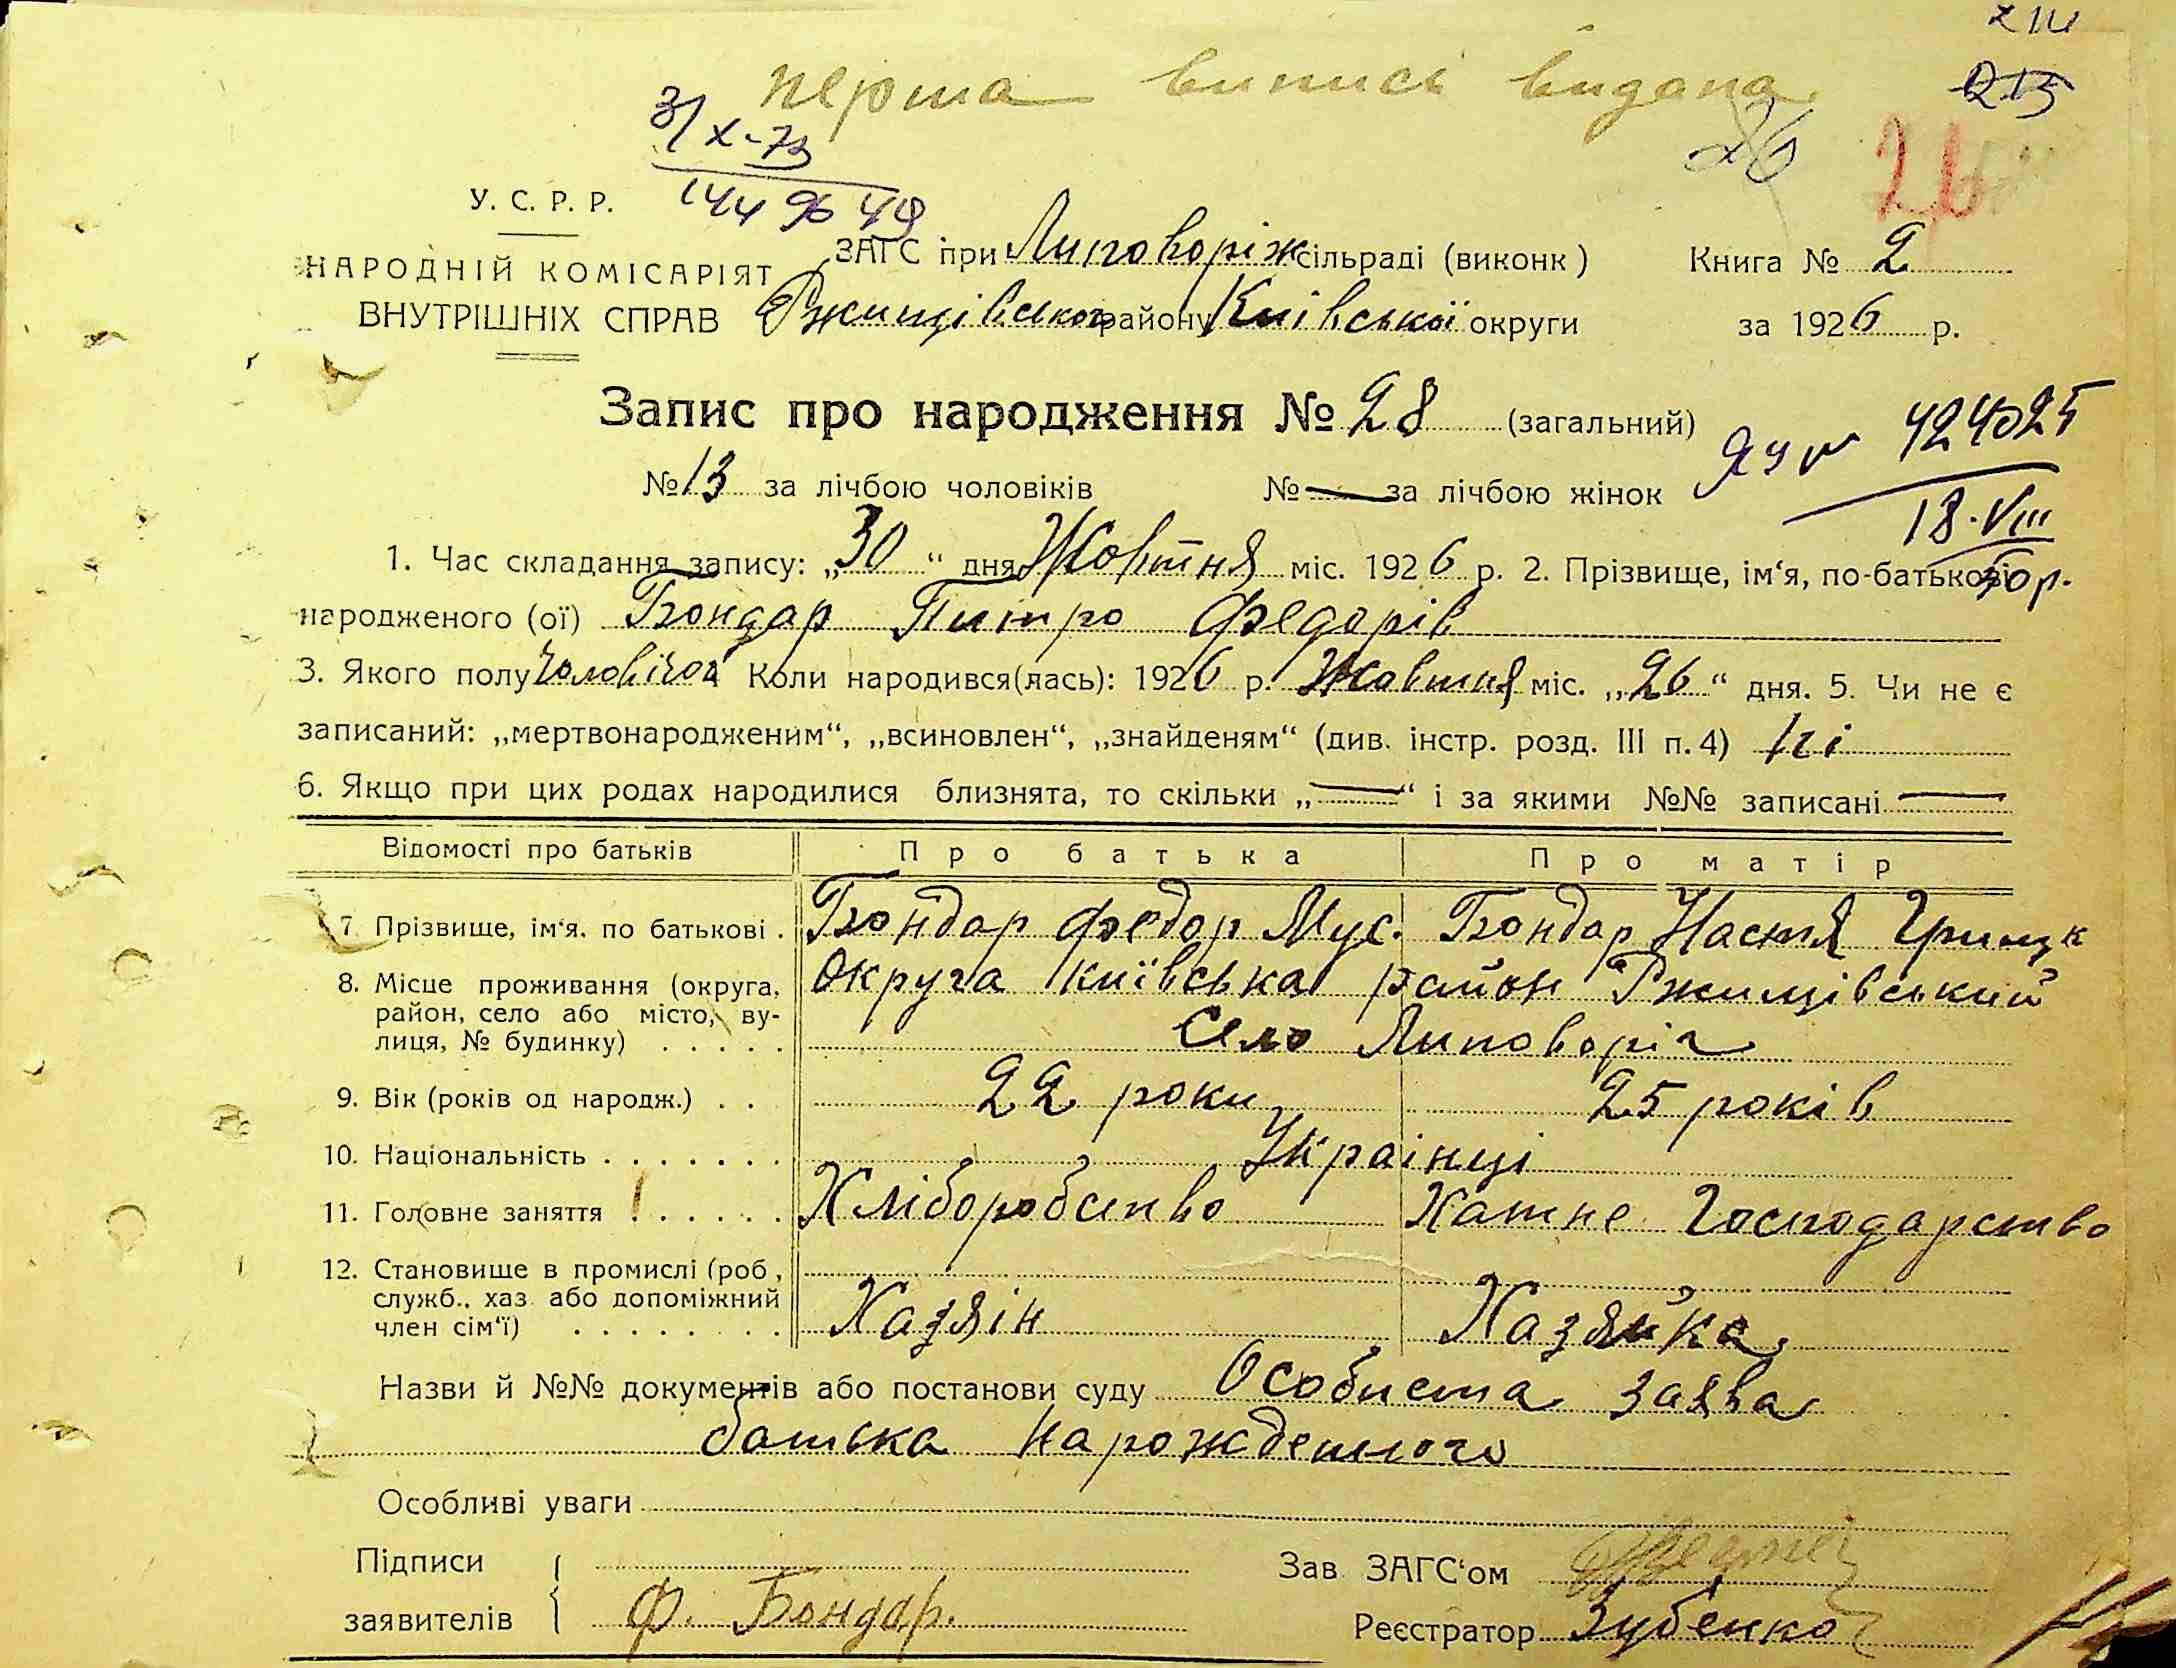 х IIII
215
перша випись видана
26
31/X-73
144 96 49
У. С. Р. Р.
НАРОДНІЙ КОМІСАРІЯТ
ВНУТРІШНІХ СПРАВ
ЗАГС при Липоворіж сільраді (виконк)
Книга № 2
Ржищівського району Київської округи
за 1926 р.
Запис про народження № 28 (загальний)
424025
18·VIII
50р.
№ 13 за лічбою чоловіків № — за лічбою жінок
1. Час складання запису: „30“ дня Жовтня міс. 1926 р. 2. Прізвище, ім‘я, по-батькові
народженого (ої) Бондар Питро Федорів
3. Якого полу Чоловічої Коли народився(лась): 1926 р. Жовтня міс. „26“ дня. 5. Чи не є
записаний: „мертвонародженим“, „всиновлен“, „знайденям“ (див. інстр. розд. III п. 4) Ні
6. Якщо при цих родах народилися близнята, то скільки „—“ і за якими №№ записані —
Відомості про батьків Про батька Про матір
7. Прізвище, ім‘я. по батькові . Бондар Федор Мус. Бондар Настя Грицк
8. Місце проживання (округа, район, село або місто, ву-лиця, № будинку) . . . . .
Округа Київська район Ржищівський
Село Липоворіг
9. Вік (років од народж.) . . 22 роки 25 років
10. Національність . . . . . . . Украінці
11. Головне заняття . . . . . . Хліборобство Хатне Господарство
12. Становище в промислі (роб., служб., хаз. або допоміжний член сім‘ї) . . . . . . . .
Хазяін Хазяйка
Назви й №№ документів або постанови суду Особиста заява
батька нарожденного
Особливі уваги
Підписи
заявителів
Ф. Бондар.
Зав ЗАГС‘ом
Реєстратор Зубенко